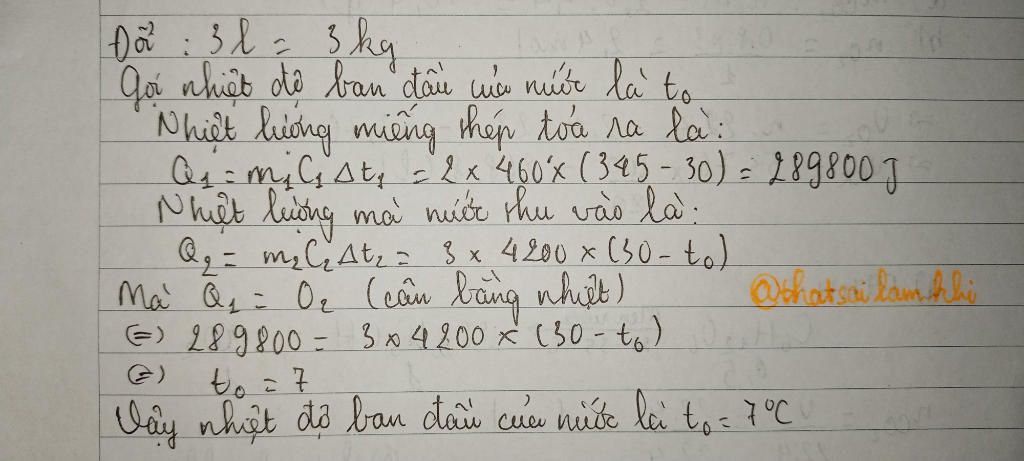 Đổi : 3l = 3 kg
Gọi nhiệt độ ban đầu của nước là t₀
Nhiệt lượng miếng thép toả ra là:
Q₁ = m₁C₁Δt₁ = 2 × 460 × (345 - 30) = 289800 J
Nhiệt lượng mà nước thu vào là:
Q₂ = m₂C₂Δt₂ = 3 × 4200 × (30 - t₀)
Mà Q₁ = Q₂ (cân bằng nhiệt) @thatsailamkhi
(=) 289800 = 3 × 4200 × (30 - t₀)
(=) t₀ = 7
Vậy nhiệt độ ban đầu của nước là t₀ = 7°C